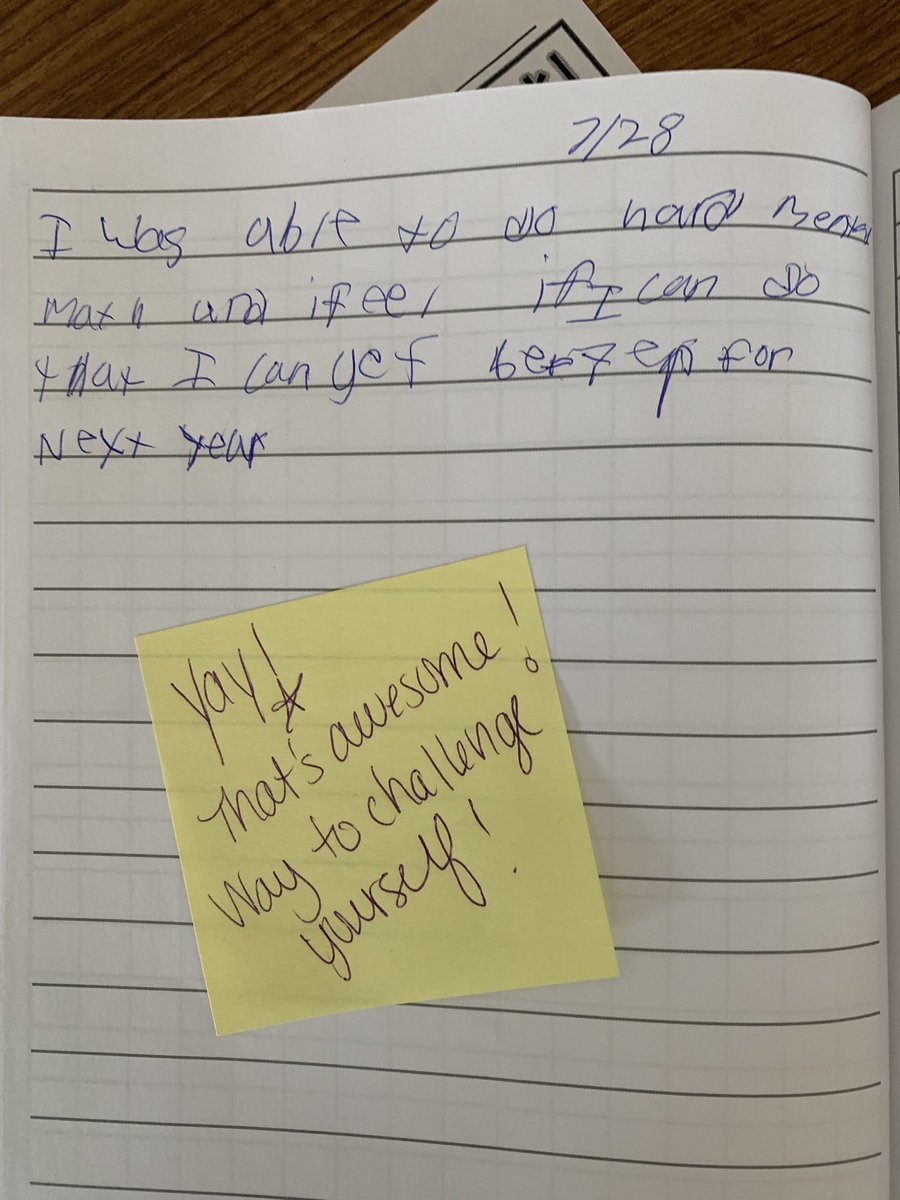 7/28
I was able to do hard Mental
Math and i feel if I can do
that I can get better for
Next year
Yay!
That's awesome!
Way to challenge
yourself!